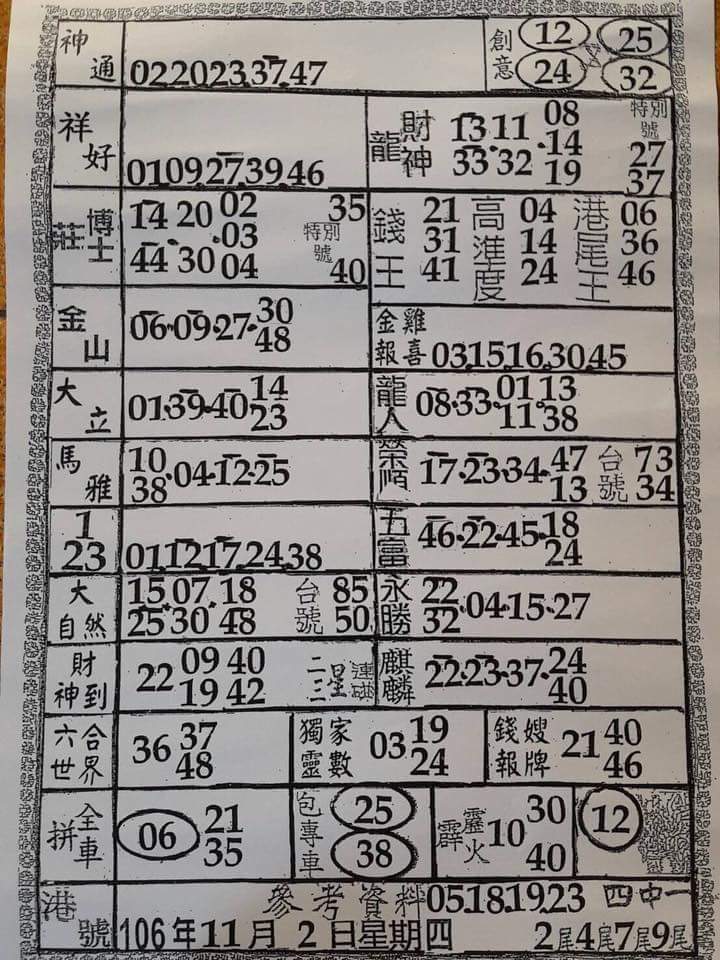 神通 02.20.23.37.47 創意 12 25
24 32
祥好 01.09.27.39.46
龍 財神 13.11.08 特別號
33.32.14 27
19 37
莊博士 14 20 02 35
03 特別號
44 30 04 40
錢王 21 高準度 04 港尾王 06
31 14 36
41 24 46
金山 06.09.27.30
48
金雞報喜 03.15.16.30.45
大立 01.39.40.14
23
龍人 08.33.01.13
11.38
馬雅 10.04.12.25
38
榮順 17.23.34.47 台號 73
13 34
123 01.12.17.24.38
五富 46.22.45.18
24
大自然 15.07.18 台號 85
25 30 48 50
永勝 22.04.15.27
32
財神到 22 09 40 二三星連碰
19 42
麒麟 22.23.37.24
40
六合世界 36 37
48
獨家靈數 03 19
24
錢嫂報牌 21 40
46
全車拼 06 21
35
包專車 25
38
霹靂火 10 30
40
12
港號 參考資料 05.18.19.23 四中一
106年11月2日星期四 2尾4尾7尾9尾